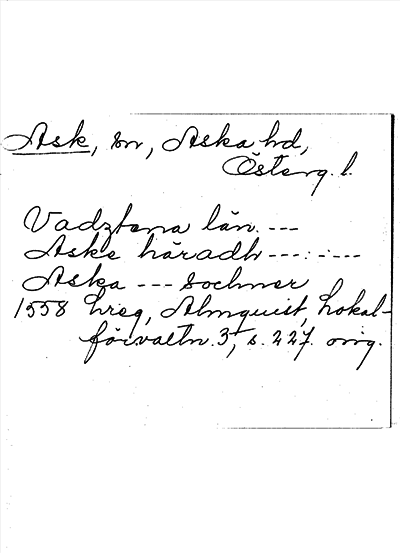 Ask, sn, Aska hd,
Österg. l.
Vadzstena län. ---
Aske häradh --- : - ---
Aska --- sochner
1558 hreg, Almquist, Lokal-
förvaltn. 3, s. 227. orig.